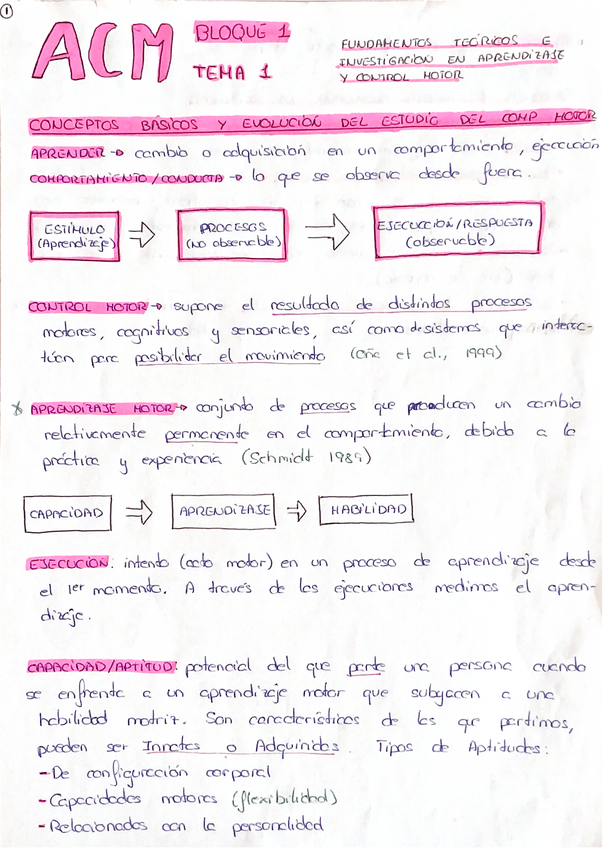 1
ACM BLOQUE 1
TEMA 1
FUNDAMENTOS TEÓRICOS E
INVESTIGACIÓN EN APRENDIZAJE
Y CONTROL MOTOR
CONCEPTOS BÁSICOS Y EVOLUCIÓN DEL ESTUDIO DEL COMP MOTOR
APRENDER → cambio o adquisición en un comportamiento, ejecución
COMPORTAMIENTO/CONDUCTA → lo que se observa desde fuera.
ESTÍMULO (Aprendizaje) ⇒ PROCESOS (No observable) ⇒ EJECUCCIÓN/RESPUESTA (observable)
CONTROL MOTOR → supone el resultado de distintos procesos
motores, cognitivos y sensoriales, así como de sistemas que interac-
túan para posibilitar el movimiento (Oña et al., 1999)
* APRENDIZAJE MOTOR → conjunto de procesos que producen un cambio
relativamente permanente en el comportamiento, debido a la
práctica y experiencia (Schmidt 1989)
CAPACIDAD ⇒ APRENDIZAJE ⇒ HABILIDAD
EJECUCIÓN: intento (acto motor) en un proceso de aprendizaje desde
el 1er momento. A través de las ejecuciones medimos el apren-
dizaje.
CAPACIDAD/APTITUD: potencial del que parte una persona cuando
se enfrenta a un aprendizaje motor que subyacen a una
habilidad motriz. Son características de las que partimos,
pueden ser Innatas o Adquiridas. Tipos de Aptitudes:
- De configuración corporal
- Capacidades motoras (flexibilidad)
- Relacionados con la personalidad